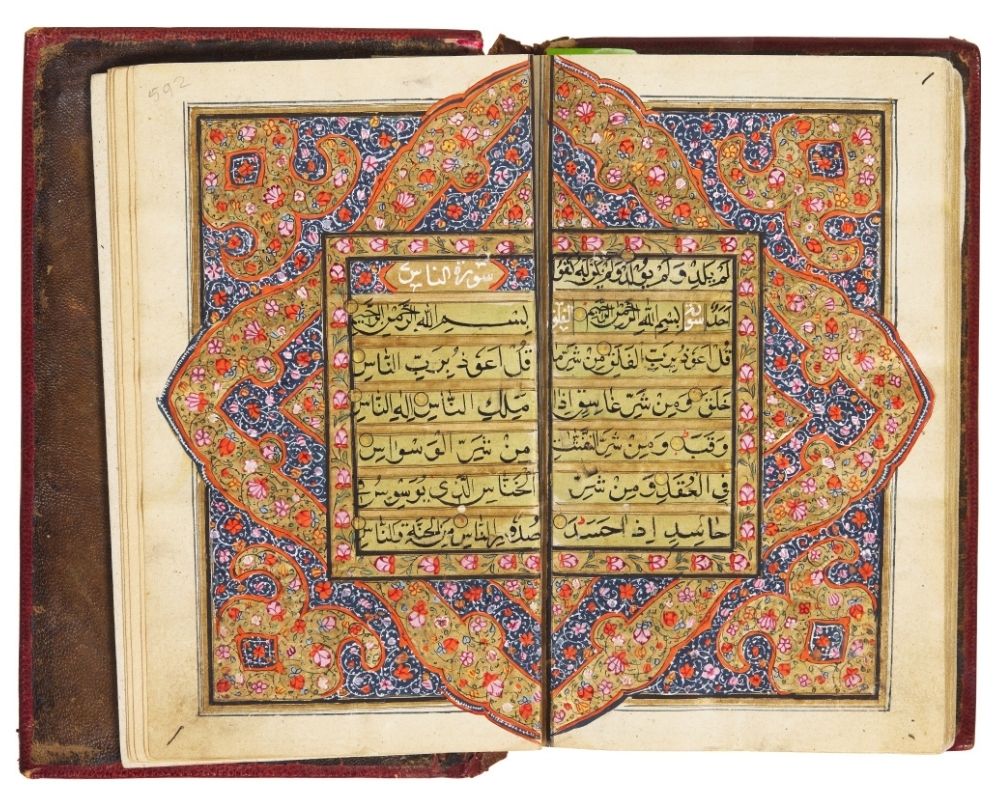 لم يلد ولم يولد ولم يكن له كفوا
احد سورة بسم الله الرحمن الرحيم الفلق
قل اعوذ برب الفلق من شر ما
خلق ومن شر غاسق اذا
وقب ومن شر النفثت
في العقد ومن شر
حاسد اذا حسد
592
سورة الناس
بسم الله الرحمن الرحيم
قل اعوذ برب الناس
ملك الناس اله الناس
من شر الوسواس
الخناس الذي يوسوس في
صدور الناس من الجنة والناس